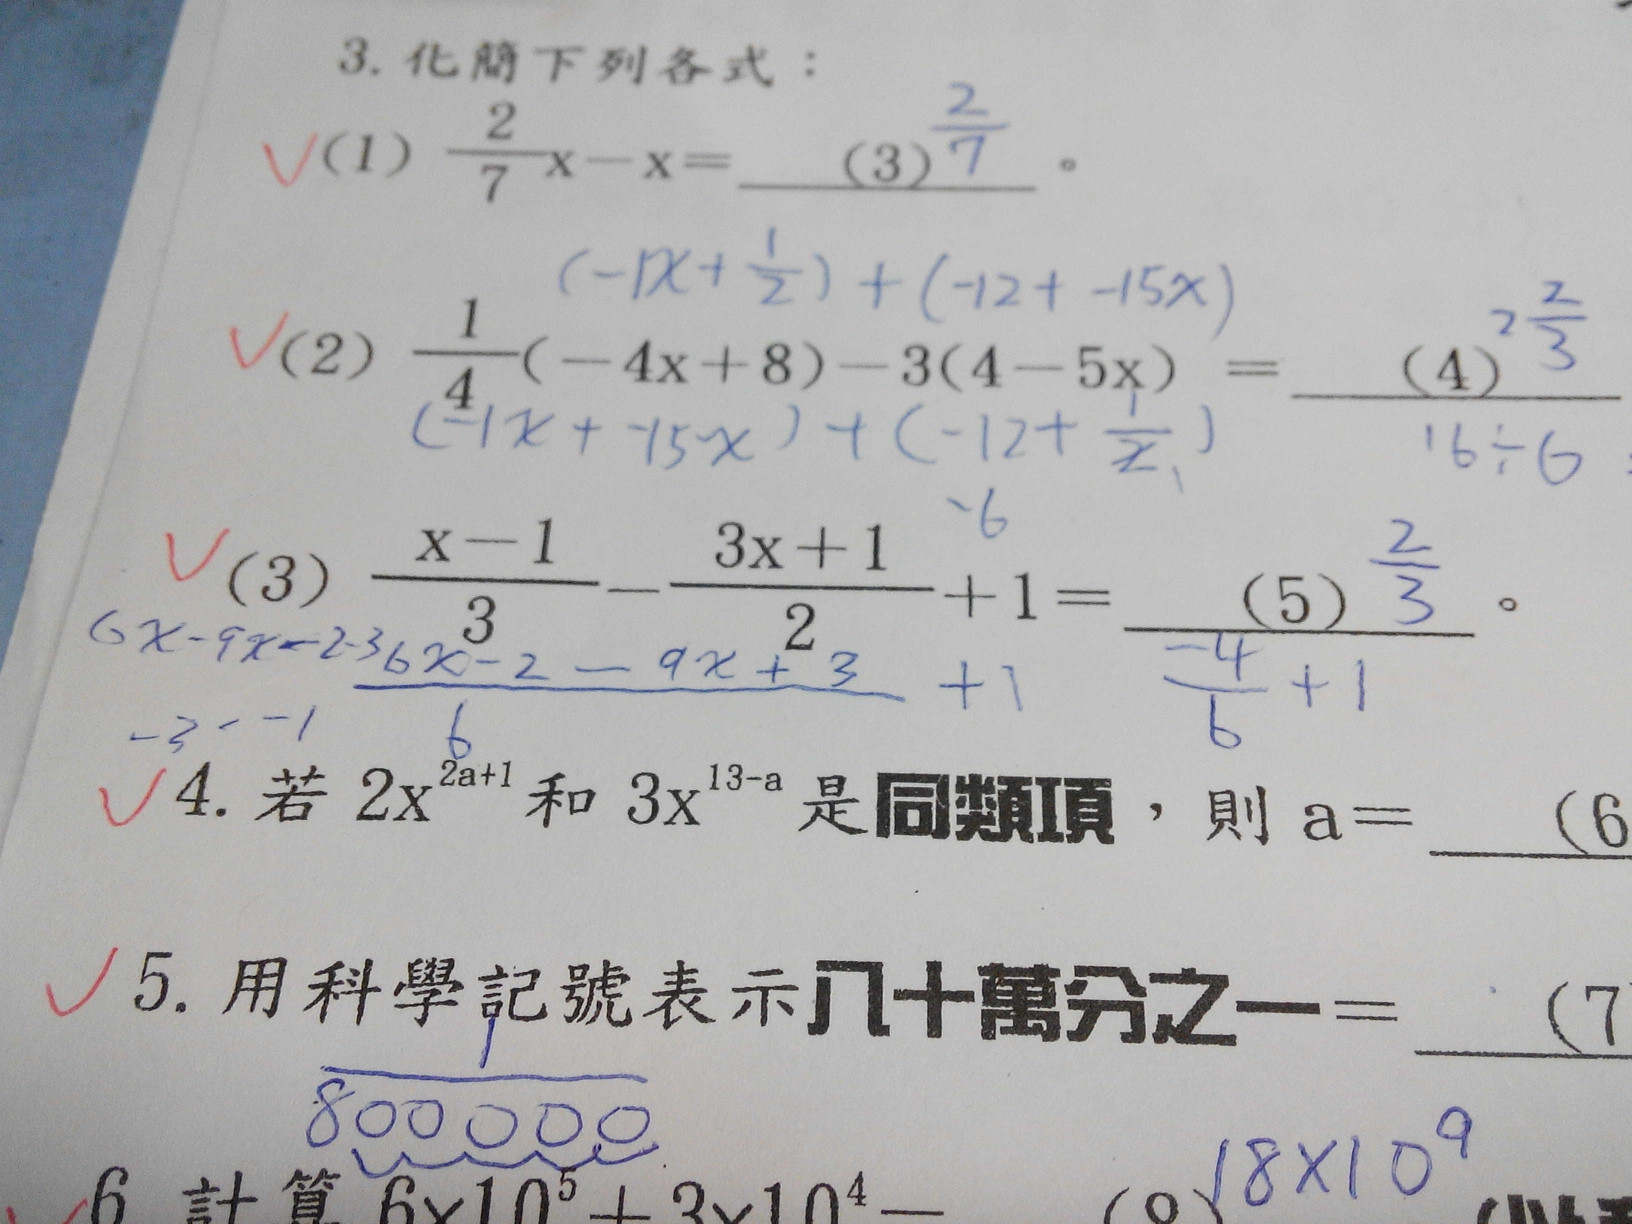 3. 化簡下列各式：
(1) 2/7 x－x＝ (3) 2/7 。
(-1x+1/2)+(-12+-15x)
(2) 1/4(－4x＋8)－3(4－5x) ＝ (4) 2 2/3
(-1x+-15x)+(-12+1/2) 16÷6
-6
(3) x－1/3－3x＋1/2＋1＝ (5) 2/3 。
6x-2-9x+3/6 +1 -4/6+1
4. 若 2x^{2a+1} 和 3x^{13-a} 是同類項，則 a＝ (6
5. 用科學記號表示八十萬分之一＝ (7
1/800000
18x10^9
6. 計算 6×10^5＋3×10^4＝ (8)